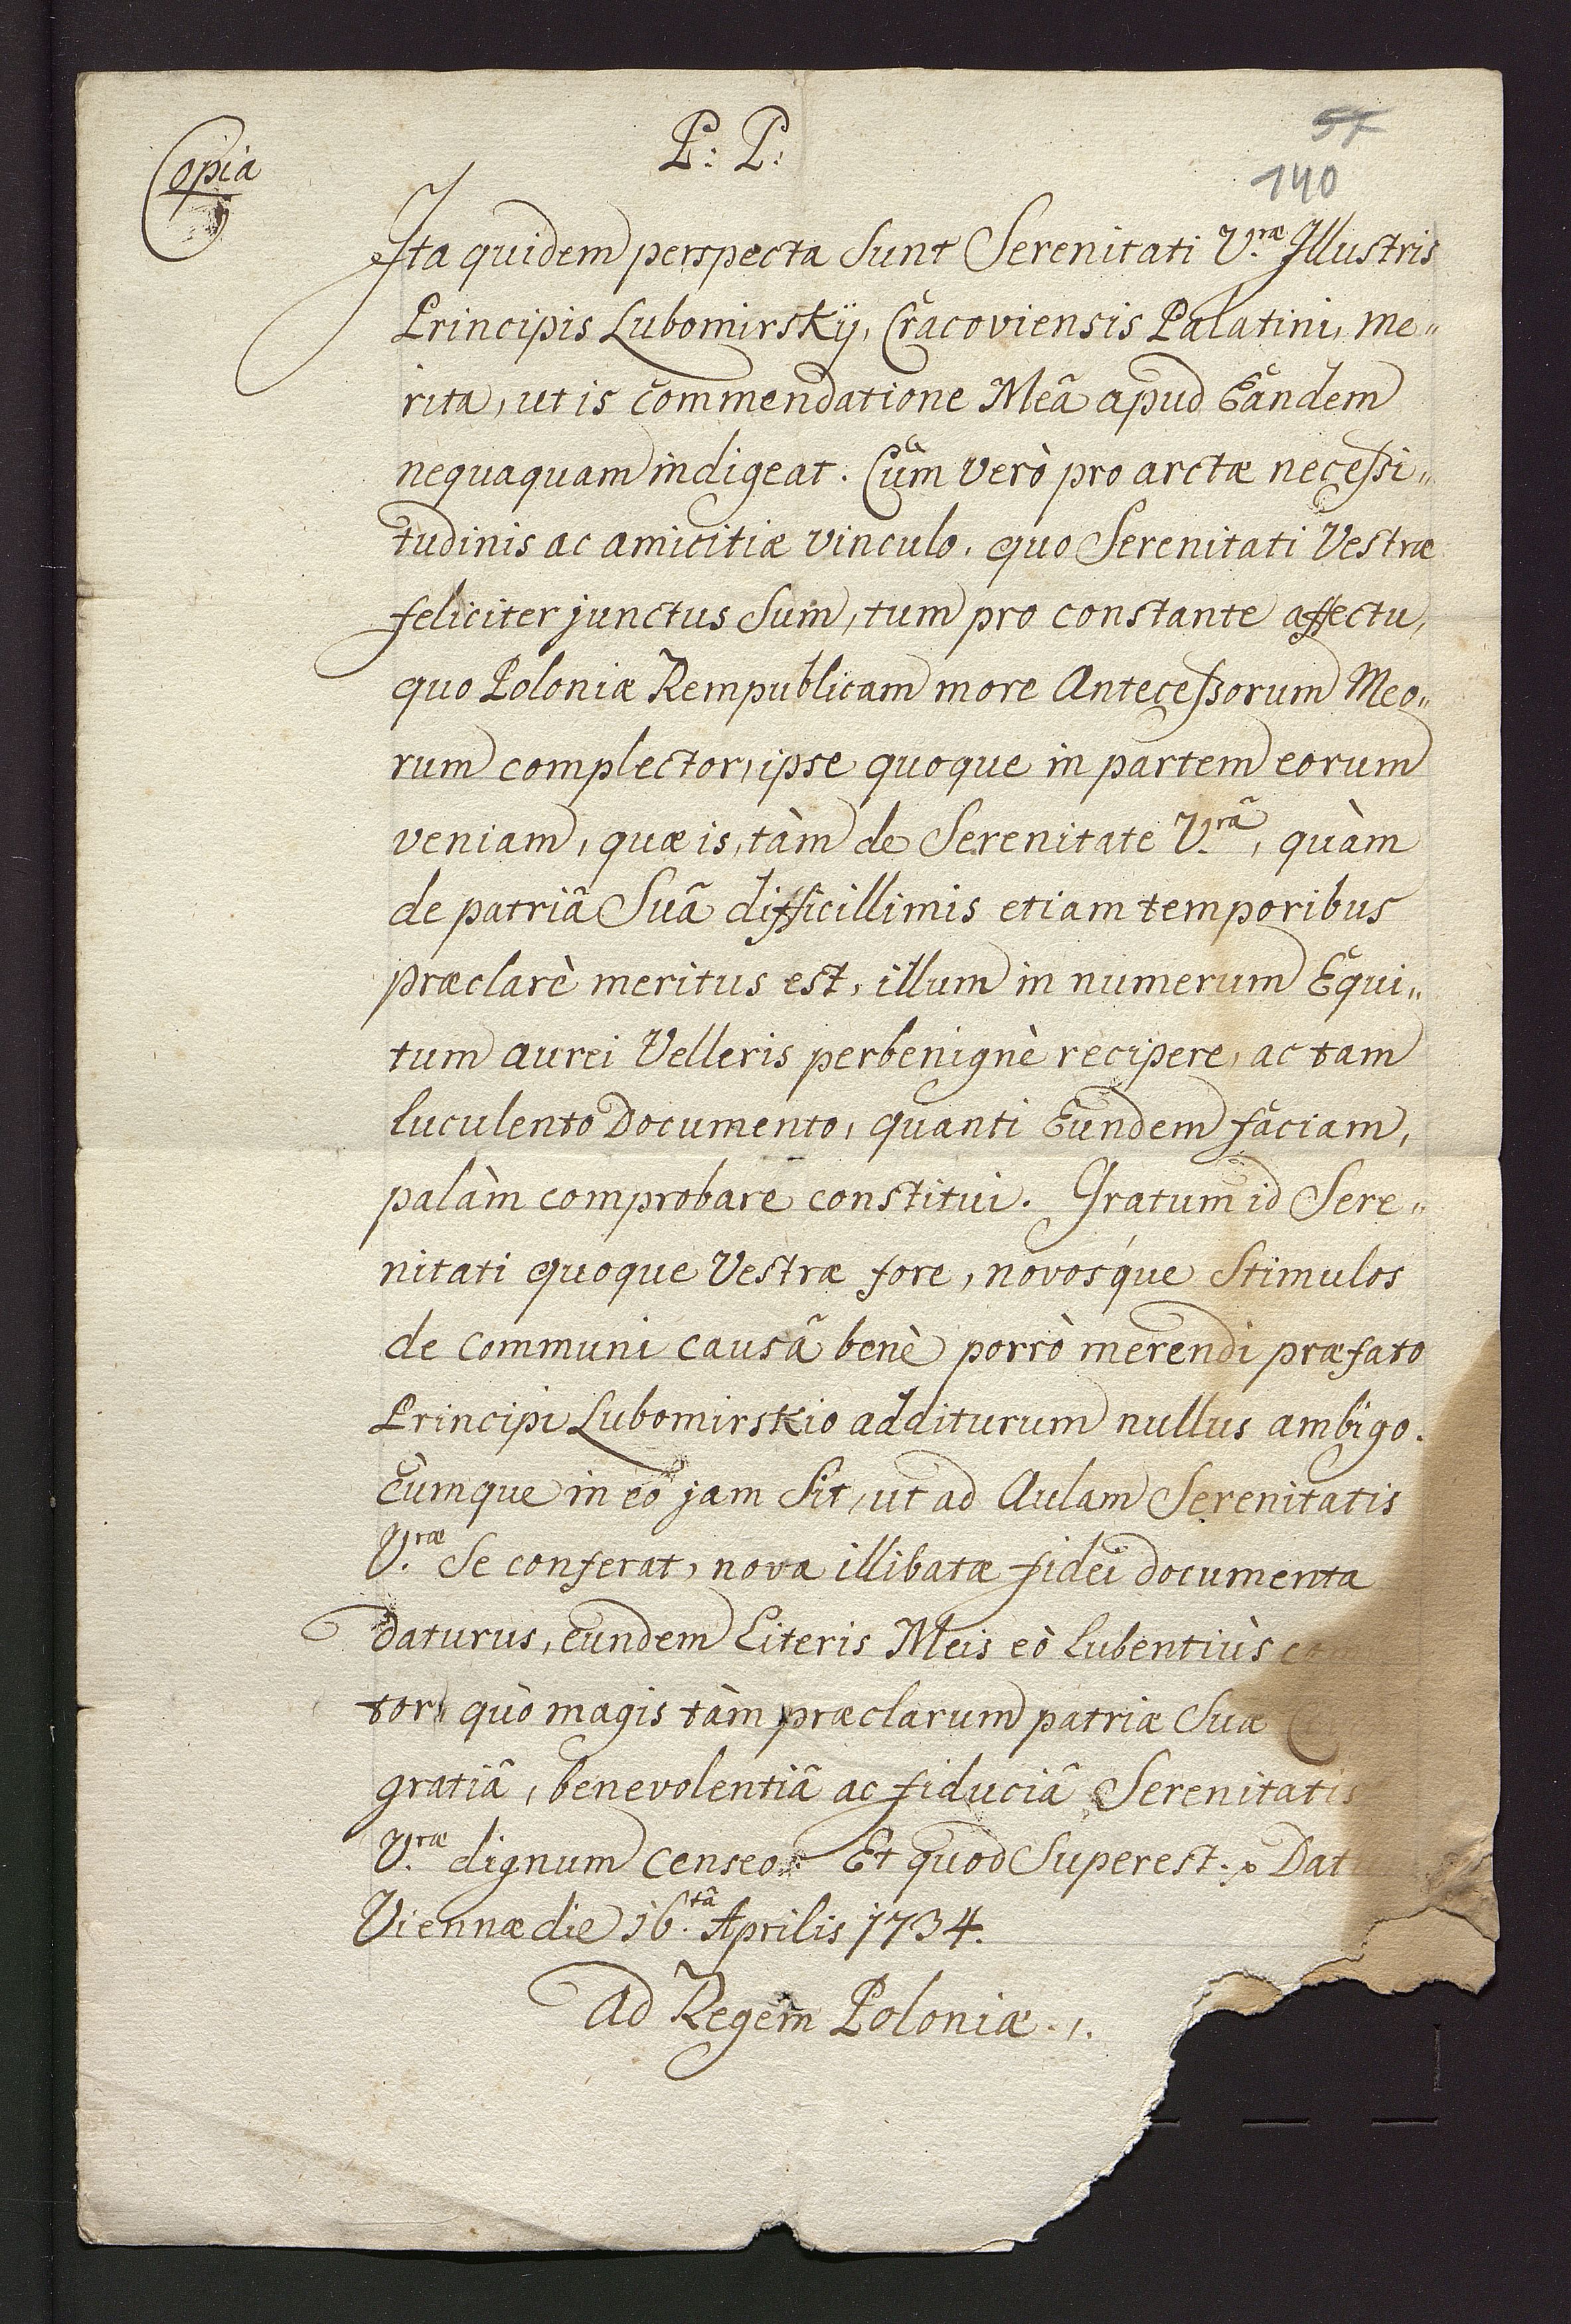 P: P:
57
140
Copia
Ita quidem perspecta sunt Serenitati V.ræ Illustris
Principis Lubomirskÿ, Cracoviensis Palatini, me„
rita, ut is commendatione Meâ apud Eandem
nequaquam indigeat. Cùm verò pro arctæ necessi„
tudinis ac amicitiæ vinculo, quo Serenitati Vestræ
feliciter junctus sum, tum pro constante affectu,
quo Poloniæ Rempublicam more Antecessorum Meo„
rum complector, ipse quoque in partem eorum
veniam, quæ is, tàm de Serenitate V.râ, quàm
de patriâ Suâ difficillimis etiam temporibus
præclarè meritus est, illum in numerum Equi„
tum aurei Velleris perbenignè recipere, ac tam
luculento Documento, quanti Eundem faciam,
palàm comprobare constitui. Gratum id Sere„
nitati quoque Vestræ fore, novosque stimulos
de communi causâ benè porrò merendi præfato
Principi Lubomirskio additurum nullus ambigo.
Cumque in eo jam sit, ut ad Aulam Serenitatis
V.ræ se conferat, nova illibatæ fidei documenta
daturus, eundem Literis Meis eò lubentiùs
tor, quò magis tàm præclarum patriæ Suæ
gratiâ, benevolentiâ ac fiduciâ Serenitatis
V.ræ dignum censeo. Et quod superest. Dat
Viennæ die 16.tâ Aprilis 1734.
Ad Regem Poloniæ.